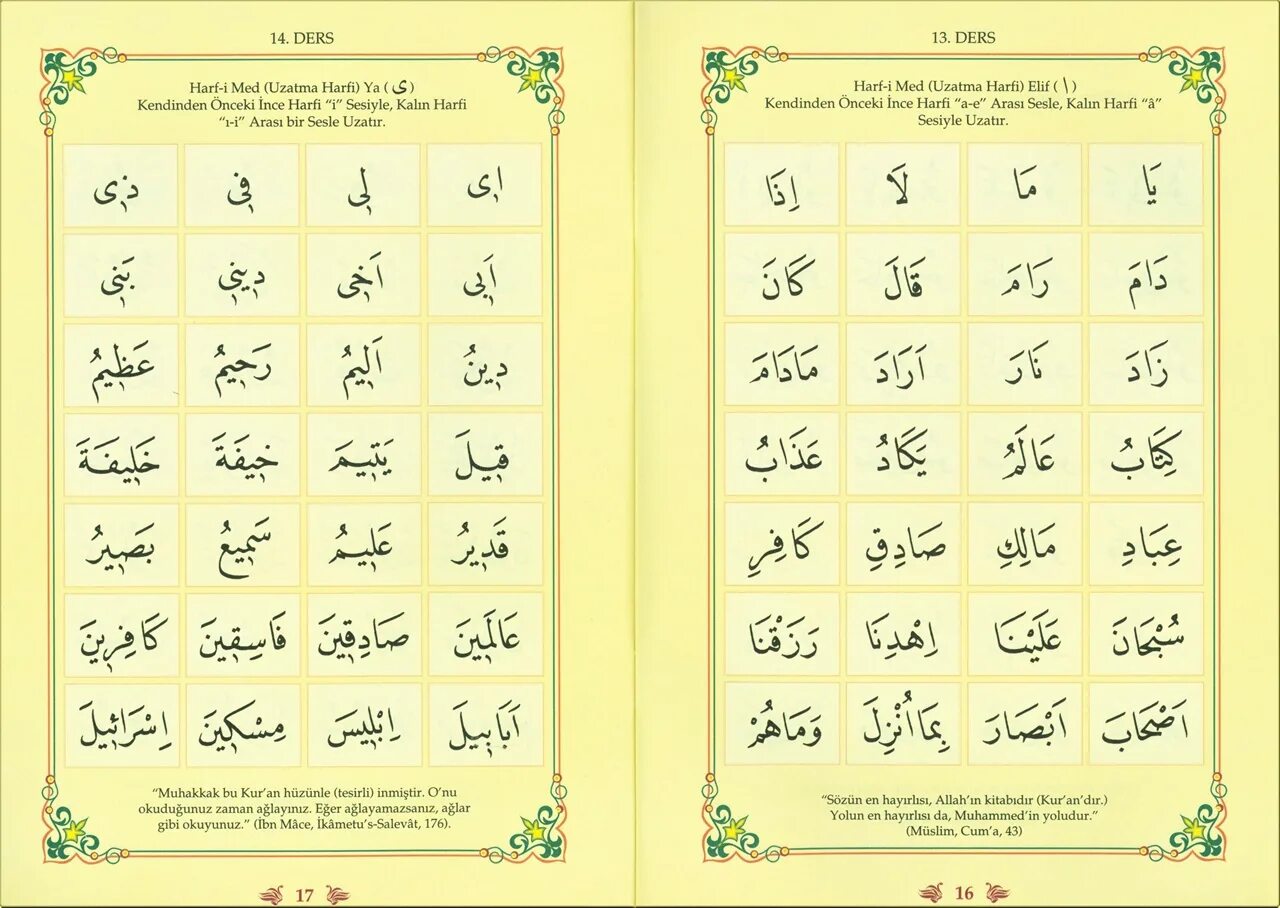 13. DERS
Harf-i Med (Uzatma Harfi) Elif ( ا )
Kendinden Önceki İnce Harfi “a-e” Arası Sesle, Kalın Harfi “â”
Sesiyle Uzatır.
يَا مَا لَا اِذَا
دَامَ رَامَ قَالَ كَانَ
زَادَ نَارَ اَرَادَ مَادَامَ
كِتَابُ عَالَمُ يَكَادُ عَذَابُ
عِبَادِ مَالِكِ صَادِقِ كَافِرِ
سُبْحَانَ عَلَيْنَا اِهْدِنَا رَزَقْنَا
اَصْحَابَ اَبْصَارَ بِمَا اُنْزِلَ وَمَاهُمْ
“Sözün en hayırlısı, Allah’ın kitabıdır (Kur’an’dır.)
Yolun en hayırlısı da, Muhammed’in yoludur.”
(Müslim, Cum’a, 43)
16
14. DERS
Harf-i Med (Uzatma Harfi) Ya ( ى )
Kendinden Önceki İnce Harfi “i” Sesiyle, Kalın Harfi
“ı-i” Arası bir Sesle Uzatır.
اٖى لٖى فٖى ذٖى
اَبٖى اَخٖى دٖينٖى بَنٖى
دٖينُ اَلٖيمُ رَحٖيمُ عَظٖيمُ
قٖيلَ يَتٖيمَ خٖيفَةَ خَلٖيفَةَ
قَدٖيرُ عَلٖيمُ سَمٖيعُ بَصٖيرُ
عَالَمٖينَ صَادِقٖينَ فَاسِقٖينَ كَافِرٖينَ
اَبَابٖيلَ اِبْلٖيسَ مِسْكٖينَ اِسْرَائٖيلَ
“Muhakkak bu Kur’an hüzünle (tesirli) inmiştir. O’nu
okuduğunuz zaman ağlayınız. Eğer ağlayamazsanız, ağlar
gibi okuyunuz.” (İbn Mâce, İkâmetu’s-Salevât, 176).
17